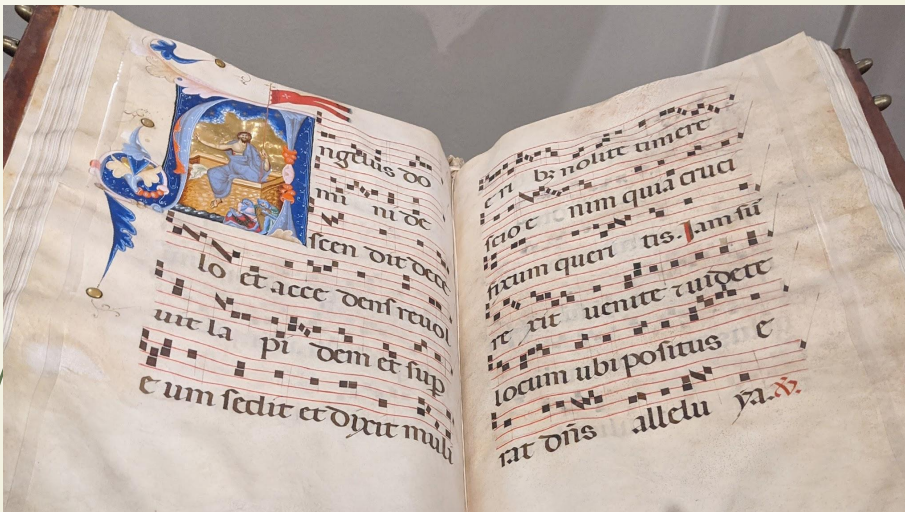 Angelus do
mi ni de
scen dit de ce
lo et acce dens reuol
uit la pi dem et sup
e um sedit et dixit muli
e ri bꝫ nolite timere
scio e nim quia cruci
fixum queri tis. Iam su
re xit uenite ⁊ uidete
locum ubi positus e
rat dn̄s allelu ya. ℣.